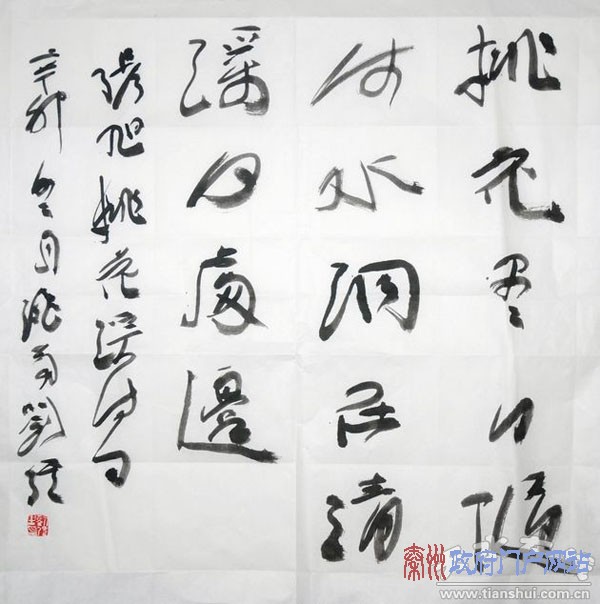 桃花盡日隨
流水洞在清
溪何處邊
張旭桃花溪詩句
辛卯冬月隴南劉
秦州政府门户网站
www.tianshui.com.cn